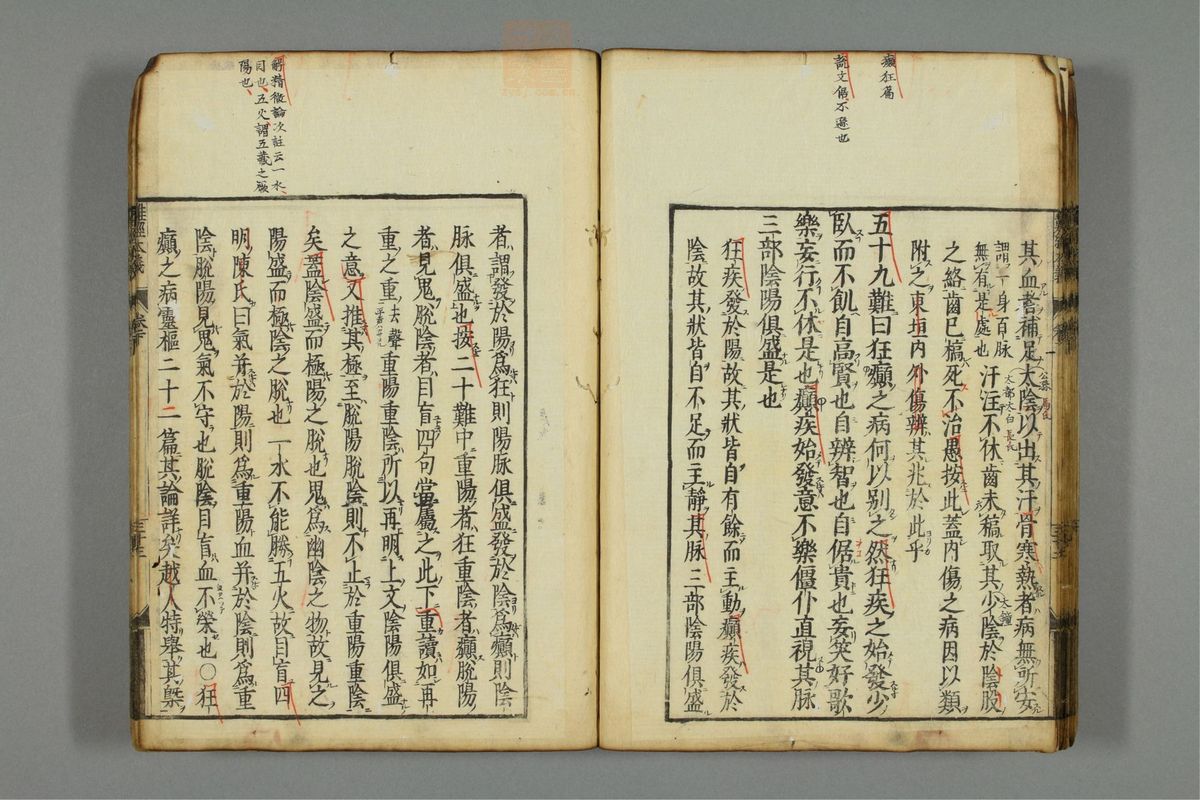 癲狂篇
説文倨不遜也
其血者補足太陰以出其汗骨寒熱者病無所安
謂一身百脉無有是處也汗注不休齒未槁取其少陰於陰股
之絡齒已槁死不治愚按此蓋内傷之病因以類
附之東垣内外傷辨其兆於此乎
五十九難曰狂癲之病何以别之然狂疾之始發少
臥而不飢自高賢也自辨智也自倨貴也妄笑好歌
樂妄行不休是也癲疾始發意不樂僵仆直視其脉
三部陰陽俱盛是也
狂疾發於陽故其狀皆自有餘而主動癲疾發於
陰故其狀皆自不足而主靜其脉三部陰陽俱盛
解精微論次註云一水
目也五火謂五藏之厥
陽也
者謂發於陽爲狂則陽脉俱盛發於陰爲癲則陰
脉俱盛也按二十難中重陽者狂重陰者癲脫陽
者見鬼脫陰者目盲四句當屬之此下重讀如再
重之重去聲重陽重陰所以再明上文陰陽俱盛
之意又推其極至脫陽脫陰則不止於重陽重陰
矣蓋陰盛而極陽之脫也鬼爲幽陰之物故見之
陽盛而極陰之脫也一水不能勝五火故目盲四
明陳氏曰氣并於陽則爲重陽血并於陰則爲重
陰脫陽見鬼氣不守也脫陰目盲血不榮也〇狂
癲之病靈樞二十二篇其論詳矣越人特舉其槩